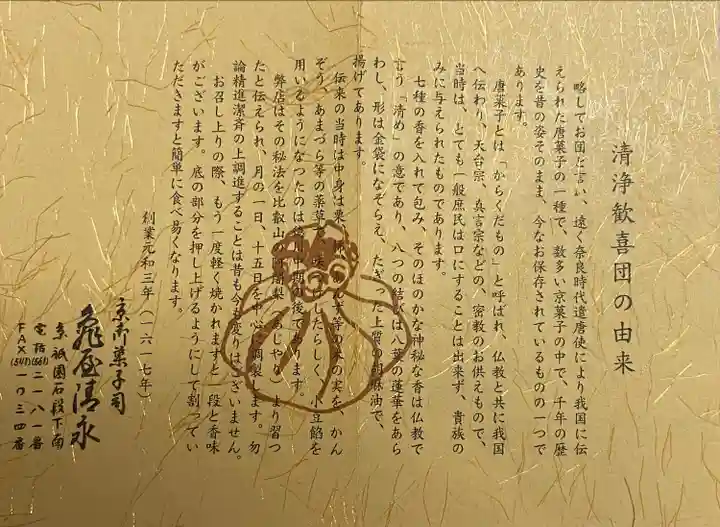 清浄歓喜団の由来
略してお団と言い、遠く奈良時代遣唐使により我国に伝
えられた唐菓子の一種で、数多い京菓子の中で、千年の歴
史を昔の姿そのまま、今なお保存されているものの一つで
あります。
唐菓子とは「からくだもの」と呼ばれ、仏教と共に我国
へ伝わり、天台宗、真言宗などの、密教のお供えもので、
当時は、とても一般庶民は口にすることは出来ず、貴族の
みに与えられたものであります。
七種の香を入れて包み、そのほのかな神秘な香は仏教で
言う「清め」の意であり、八つの結びは八葉の蓮華をあら
わし、形は金袋になぞらえ、たぎった上質の胡麻油で、
揚げてあります。
伝来の当時は中身は栗、柿、あんず等の木の実を、かん
ぞう、あまづら等の薬草で味付けしたらしく、小豆餡を
用いるようになつたのは徳川中期の後であります。
弊店はその秘法を比叡山の阿闍梨（あじゃり）より習つ
たと伝えられ、月の一日、十五日を中心に調製します。勿
論精進潔斉の上調進することは昔も今も変りはございません。
お召し上りの際、もう一度軽く焼かれますと一段と香味
がございます。底の部分を押し上げるようにして割ってい
ただきますと簡単に食べ易くなります。
創業元和三年（一六一七年）
京御菓子司
亀屋清永
京祇園石段下南
電話(561)二一八一番
FAX(541)一〇三四番